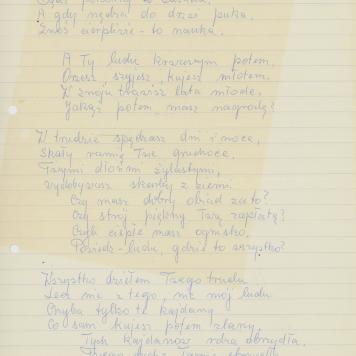 A gdy nędza do drzwi puka,
Znoś cierpliwie - to nauka.
A Ty ludu krwawym potem,
Orzesz, szyjesz, kujesz młotem.
W znoju trawisz lata młode,
Jakąż potem masz nagrodę?
W trudzie spędzasz dni i noce,
Skały ramię Twe gruchoce,
Twymi dłońmi żylastymi,
wydobywasz skarby z ziemi.
Czy masz dobry obiad za to?
Czy strój piękny Twą zapłatą?
Czyli ciepłe masz ognisko,
Powiedz - ludu, gdzie to wszystko?
Wszystko dziełem Twego trudu
Lecz nic z tego, nic mój ludu
Chyba tylko te kajdany
Co sam kujesz potem zlany,
Tych kajdanów rdza obrzydła,